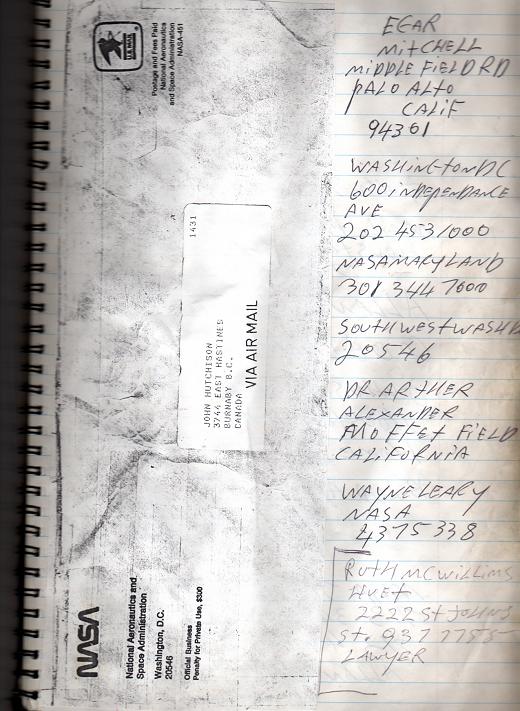 U.S. MAIL
Postage and Fees Paid
National Aeronautics
and Space Administration
NASA-451
1431
JOHN HUTCHISON
3744 EAST HASTINES
BURNABY B.C.
CANADA
VIA AIR MAIL
NASA
National Aeronautics and
Space Administration
Washington, D.C.
20546
Official Business
Penalty for Private Use, $300
EGAR
MITCHELL
MIDDLEFIELD RD
PALO ALTO
CALIF
94301
WASHINGTON DC
600 INDEPENDANCE
AVE
202 453 1000
NASA MARYLAND
301 344 7600
SOUTHWEST WASH D
20546
DR ARTHER
ALEXANDER
MOFFET FIELD
CALIFORNIA
WAYNE LEARY
NASA
4375338
RUTH MCWILLIMS
2222 St JOHNS
St. 937
LAWYER